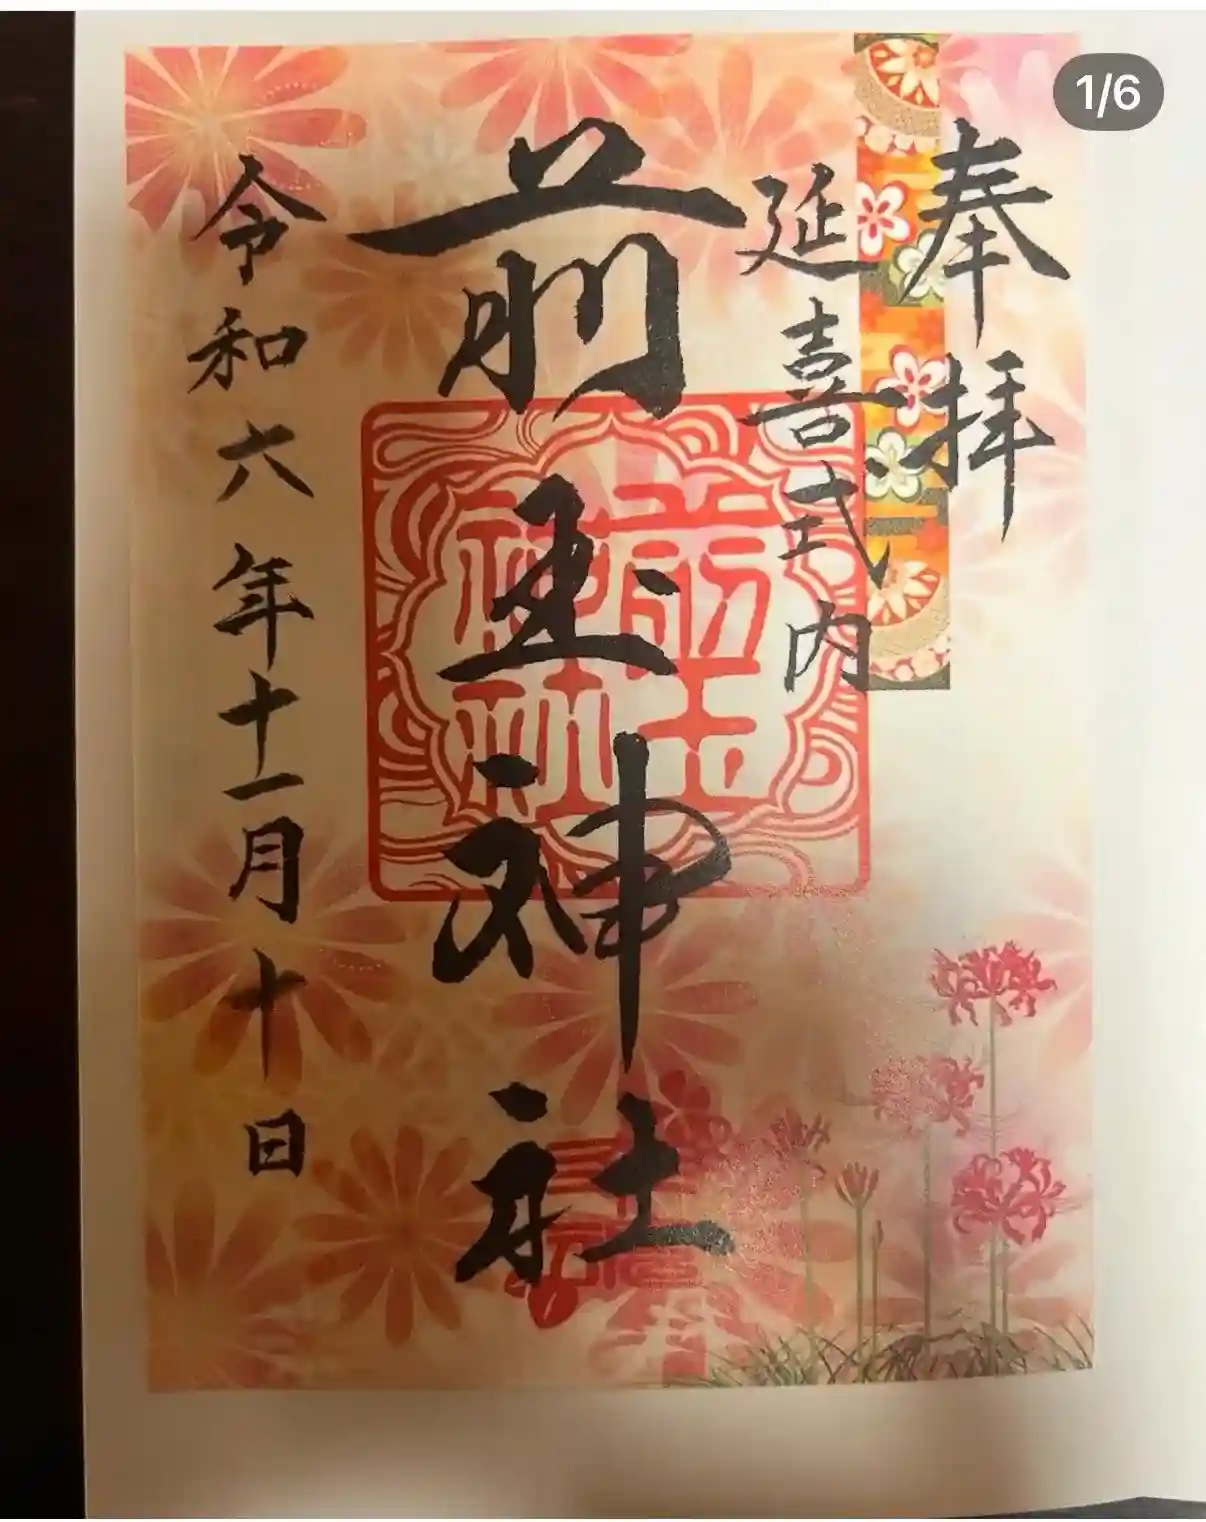 1/6
奉拝
延喜式内
前玉神社
前玉神社
令和六年十一月十日